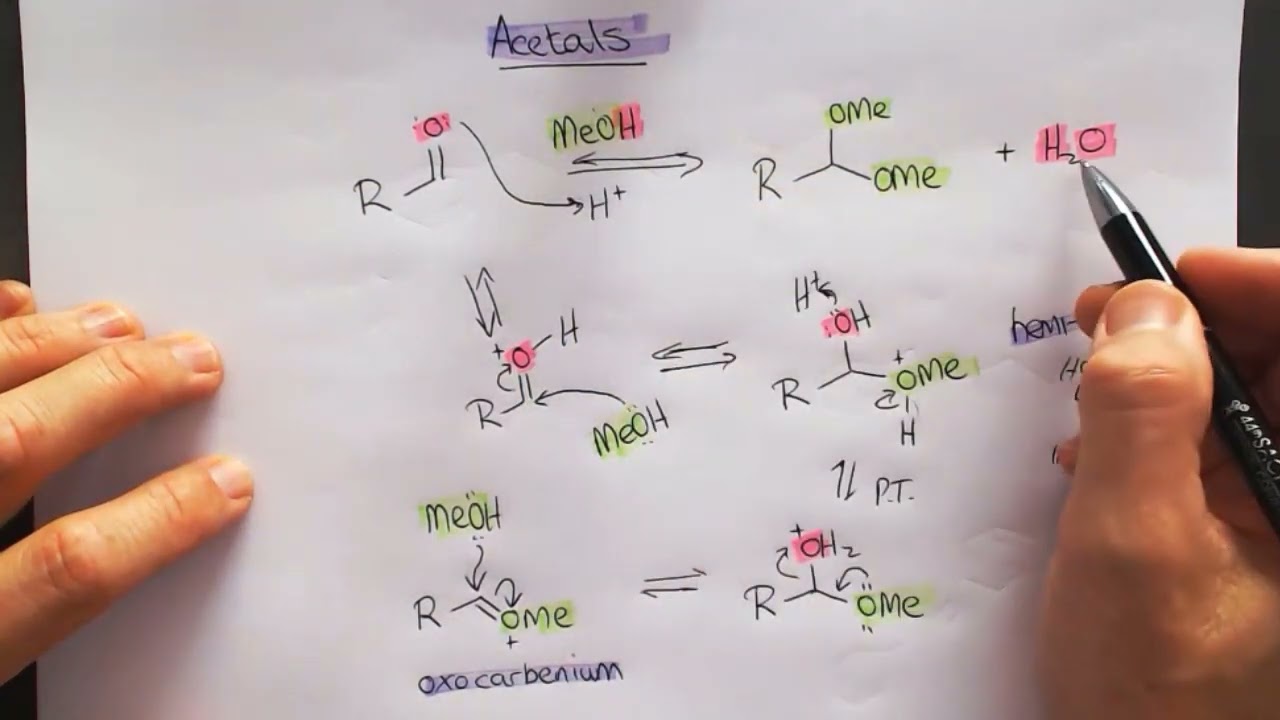 Acetals
O MeOH OMe
R H+ R OMe + H2O
H+
+ O H OH hemi-
R MeOH R + OMe
H
P.T.
MeOH + OH2
R OMe R OMe
+
oxocarbenium